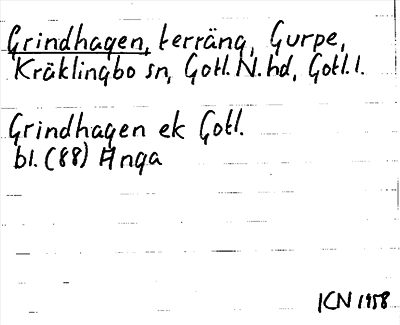 Grindhagen, terräng, Gurpe,
Kräklingbo sn, Gotl. N. hd, Gotl. l.
Grindhagen ek Gotl.
bl. (88) Anga
ICN 1958